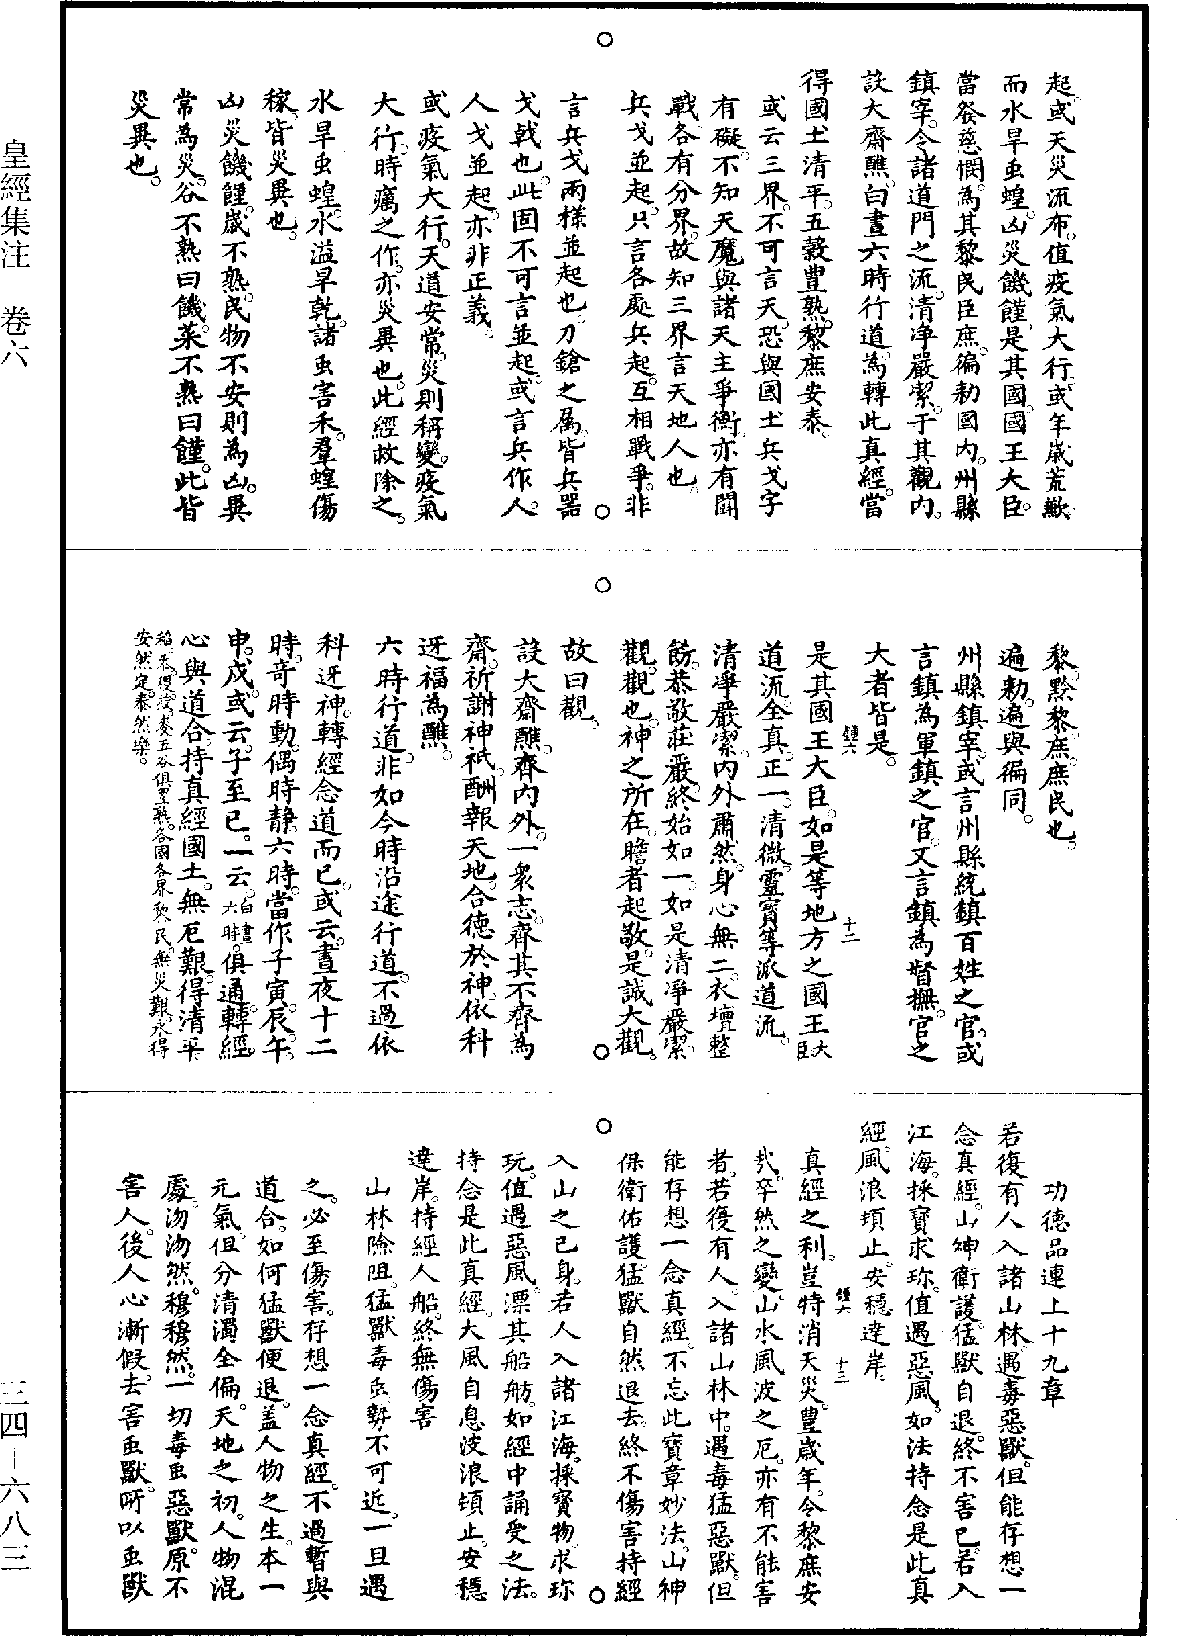 皇經集注　卷六
三四—六八三
起。或天災流布。值疫氣大行。或年歲荒歉。
而水旱虫蝗。凶災饑饉。是其國國王大臣。
當發慈憫。為其黎民臣庶。徧勅國內。州縣
鎮宰。令諸道門之流。清凈嚴潔。于其觀內。
設大齋醮。白晝六時行道。為轉此真經。當
得國土清平。五穀豊熟。黎庶安泰。
或云三界。不可言天。恐與國土兵戈字
有礙。不知天魔與諸天主爭衡。亦有鬪
戰。各有分界。故知三界言天地人也。
兵戈並起。只言各處兵起。互相戰爭。非
言兵戈兩樣並起也。刀鎗之屬。皆兵器
戈戟也。此固不可言並起。或言兵作。人。
人戈並起。亦非正義。
或疫氣大行。天道安常。災則稱變。疫氣
大行。時癘之作。亦災異也。此經故除之。
水旱虫蝗。水溢旱乾。諸虫害禾。羣蝗傷
稼。皆災異也。
凶災饑饉。歲不熟。民物不安則為凶。異
常為災。谷不熟曰饑。菜不熟曰饉。此皆
災異也。
黎黔黎。庶庶民也。
遍勅。遍與徧同。
州縣鎮宰。或言州縣統鎮百姓之官。或
言鎮為軍鎮之官。又言鎮為督撫。官之
大者皆是。
是其國王大臣。如是等地方之國王大臣
道流。全真。正一。清微。靈寶等派道流。
清凈嚴潔。內外肅然。身心無二。衣壇整
飭。恭敬莊嚴。終始如一。如是清凈嚴潔
觀。觀也。神之所在。瞻者起敬。是誠大觀。
故曰觀。
設大齋醮。齊內外。一衆志。齊其不齊為
齋。祈謝神祇。酬報天地。合德於神。依科
迓福為醮。
六時行道。非如今時沿途行道。不過依
科迓神。轉經念道而已。或云。晝夜十二
時。竒時動。偶時静。六時。當作子寅。辰。午。
申。戍。或云。子至巳。一云。白晝六時。俱通。轉經
心與道合。持真經國土。無厄艱。得清平
五谷俱豐熟。各國各界黎民。無災艱。永得
安然定。泰然樂。
功德品連上十九章
若復有人入諸山林。遇毒惡獸。但能存想一
念真經。山神衛護。猛獸自退。終不害已。若入
江海。採寶求珎。值遇惡風。如法持念是此真
經。風浪頃止。安穩達岸。
真經之利。豈特消天災。豊歲年。令黎庶安
㢤。卒然之變。山水風波之厄。亦有不能害
者。若復有人。入諸山林中。遇毒猛惡獸。但
能存想一念真經。不忘此寶章妙法。山神
保衛佑護。猛獸自然退去。終不傷害持經
入山之已身。若人入諸江海。採寶物。求珎
玩。值遇惡風。漂其船舫。如經中誦受之法。
持念是此真經。大風自息。波浪頃止。安穩
達岸。持經人船。終無傷害
山林險阻。猛獸毒虫。勢不可近。一旦遇
之。必至傷害。存想一念真經。不過暫與
道合。如何猛獸便退。盖人物之生。本一
元氣。但分清濁全偏。天地之初。人物混
處。沕沕然。穆穆然。一切毒虫惡獸。原不
害人。後人心漸假。去害虫獸。所以虫獸